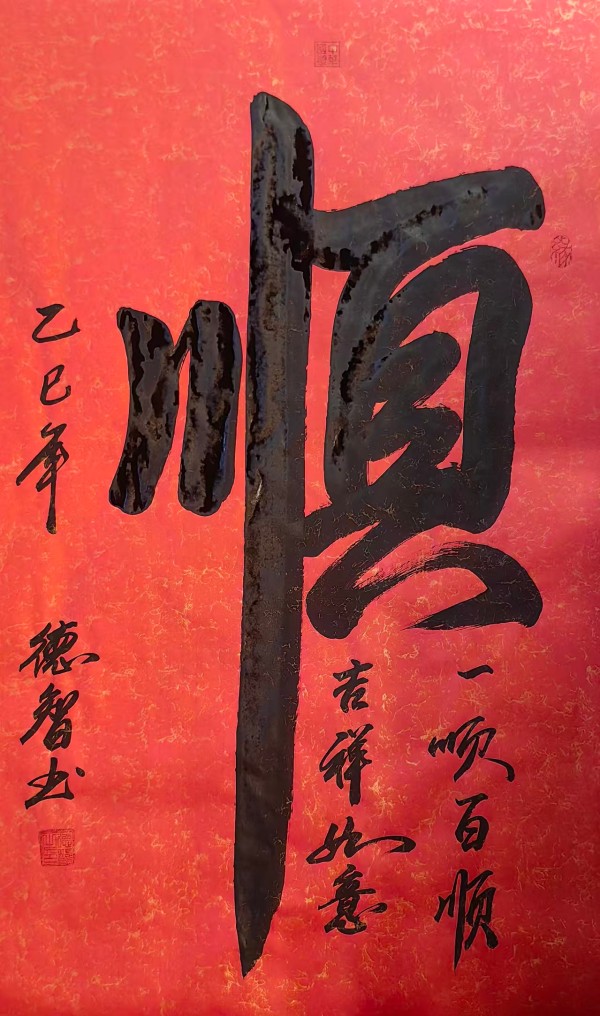 順
一顺百顺
吉祥如意
乙巳年
德智书